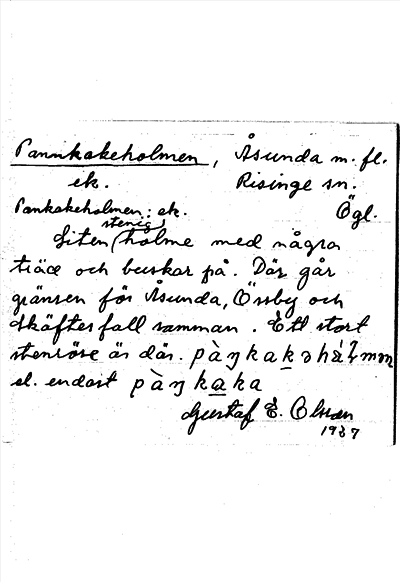 Pannkakeholmen, Åsunda m. fl.
ek. Risinge sn.
Pankakeholmen: ek. Ögl.
stenig
Liten holme med några
träd och buskar på. Där går
gränsen för Åsunda, Össby och
Skäftesfall samman. Ett stort
stenröse är där. pàŋkakəhål̀mən
el. endast pàŋkaka
Gustaf E. Olsson
1937